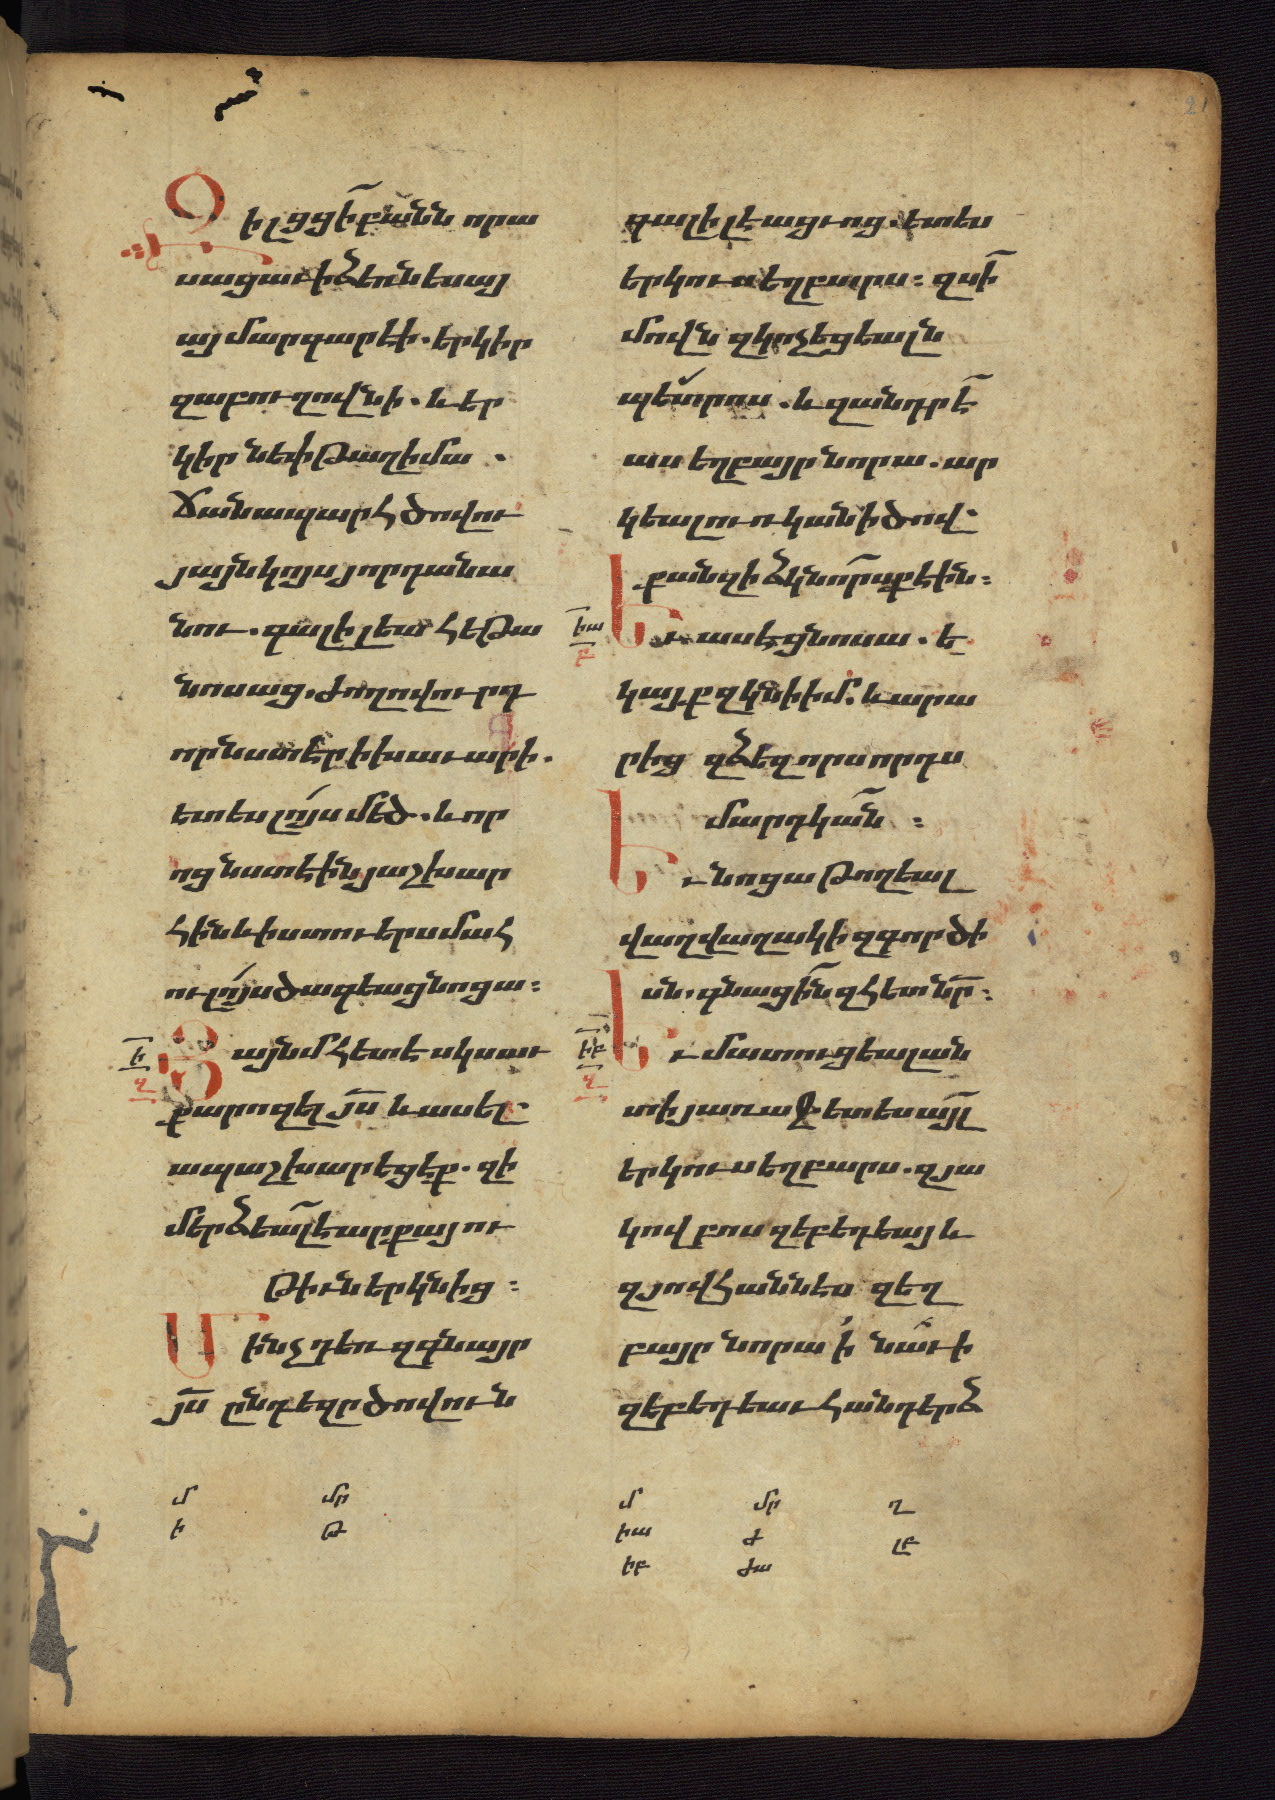 21
Զի լցցի բանն որա
սացաւ ի ձեռն եսայ
այ մարգարէի. երկիր
զաբուղովնի. և եր
կիր նեփթաղիմա .
Ճանապարհ ծովու
յայնկոյս յորդանա
նու. գալիլեա հեթա
նոսաց. ժողովուրդ
որ նստէր ի խաւարի.
ետես լոյս մեծ. և որ
ոց նստէին յաշխար
հին և ի ստուերս մահ
ու լոյս ծագեաց նոցա:
Յայնմ հետէ սկսաւ
քարոզել յս և ասել.
ապաշխարեցէք. զի
մերձեալ է արքայու
թիւն երկնից :
Մինչ դեռ զգնայր
յս ընդ եզր ծովուն
ի
զ
գալիլէացւոց. ետես
երկուս եղբարս: զսի
մովն զկոչեցեալն
պետրոս. և զանդրէ
աս եղբայր նորա. ար
կեալ ուռկան ի ծով.
քանզի ձկնորսք էին:
Եւ ասէ ցնոսա. ե
կայք զկնի իմ. և արա
րից զձեզ որսորդս
մարդկան :
Եւ նոցա թողեալ
վաղվաղակի զգործի
սն. գնացին զհետ նր:
Եւ մատուցեալ ան
տի յառաջ ետես այլ
երկուս եղբարս. զյա
կովբոս զեբեդեայ և
զյովհաննես զեղ
բայր նորա ի նաւի
զեբեդեաւ հանդերձ
իա
բ
իբ
զ
մ մր
ի թ
մ մր ղ
իա ժ լբ
իբ ժա